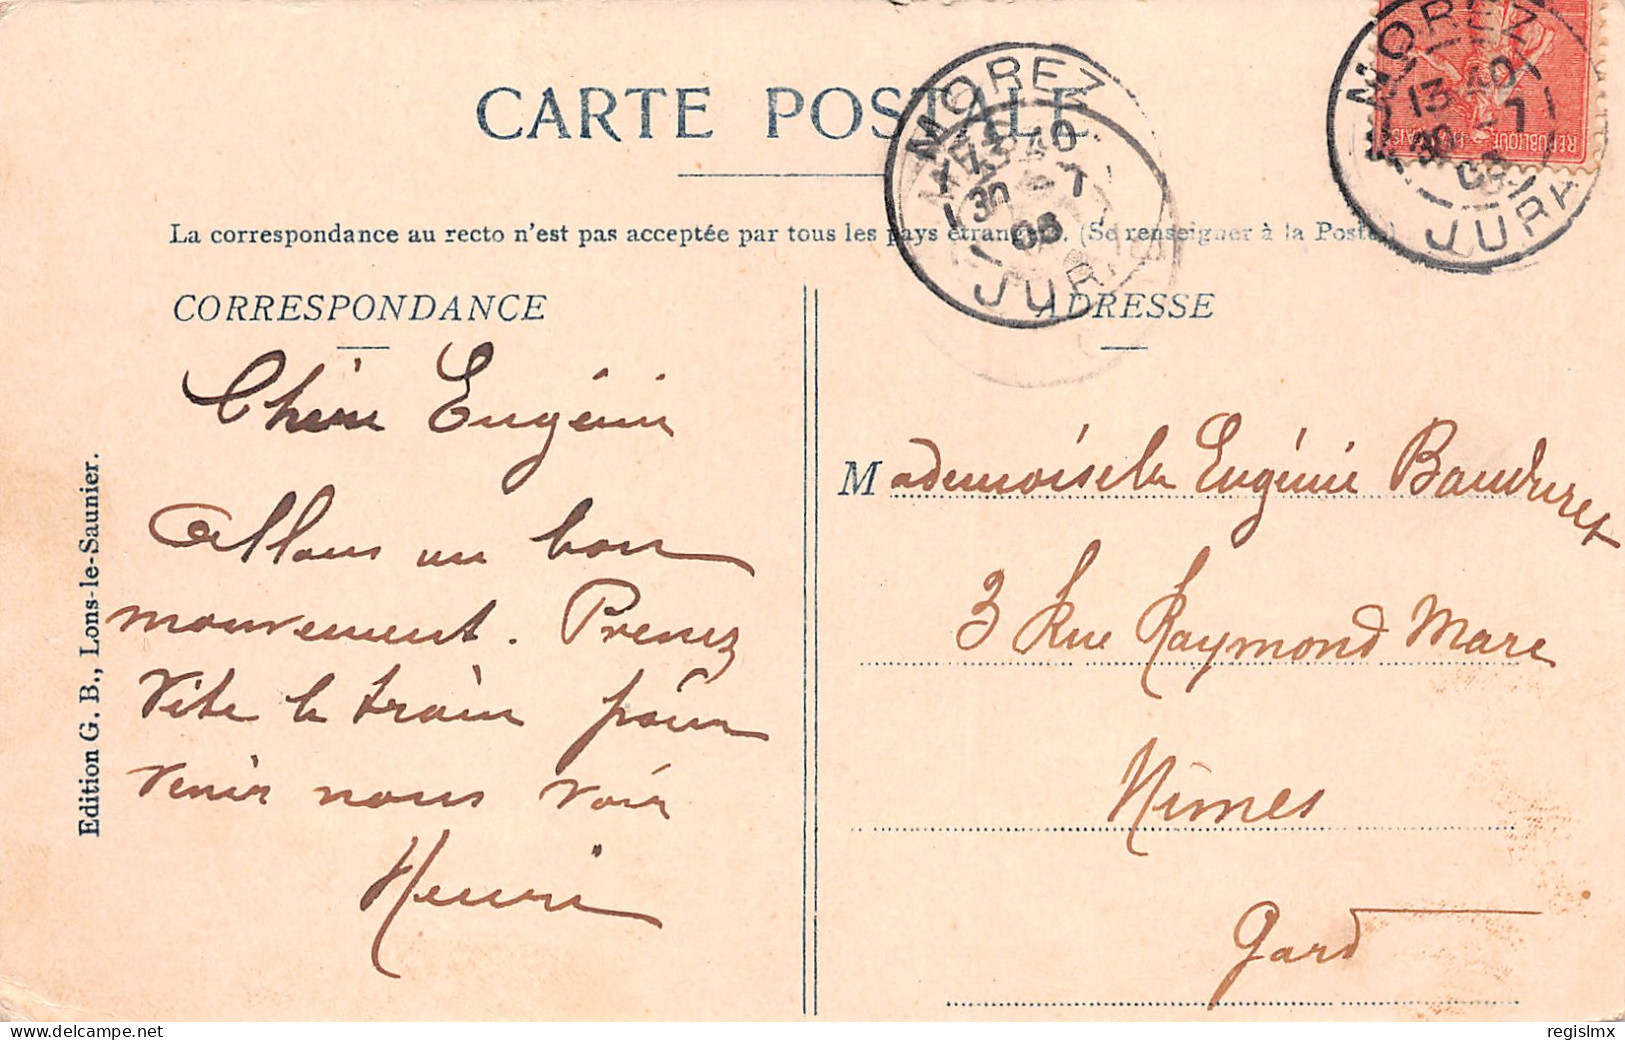 CARTE POSTALE
La correspondance au recto n'est pas acceptée par tous les pays étrangers. (Se renseigner à la Poste.)
CORRESPONDANCE
Chère Eugénie
Allons un bon
mouvement. Prenez
vite le train pour
venir nous voir
Henri
Edition G. B., Lons-le-Saunier.
MOREZ
13 40
30 - 7
JURA
MOREZ
13 40
30 - 7
JURA
REPUBLIQUE
ADRESSE
Mademoiselle Eugénie
3 Rue Raymond Marc
Nimes
Gard
delcampe.net
regislmx